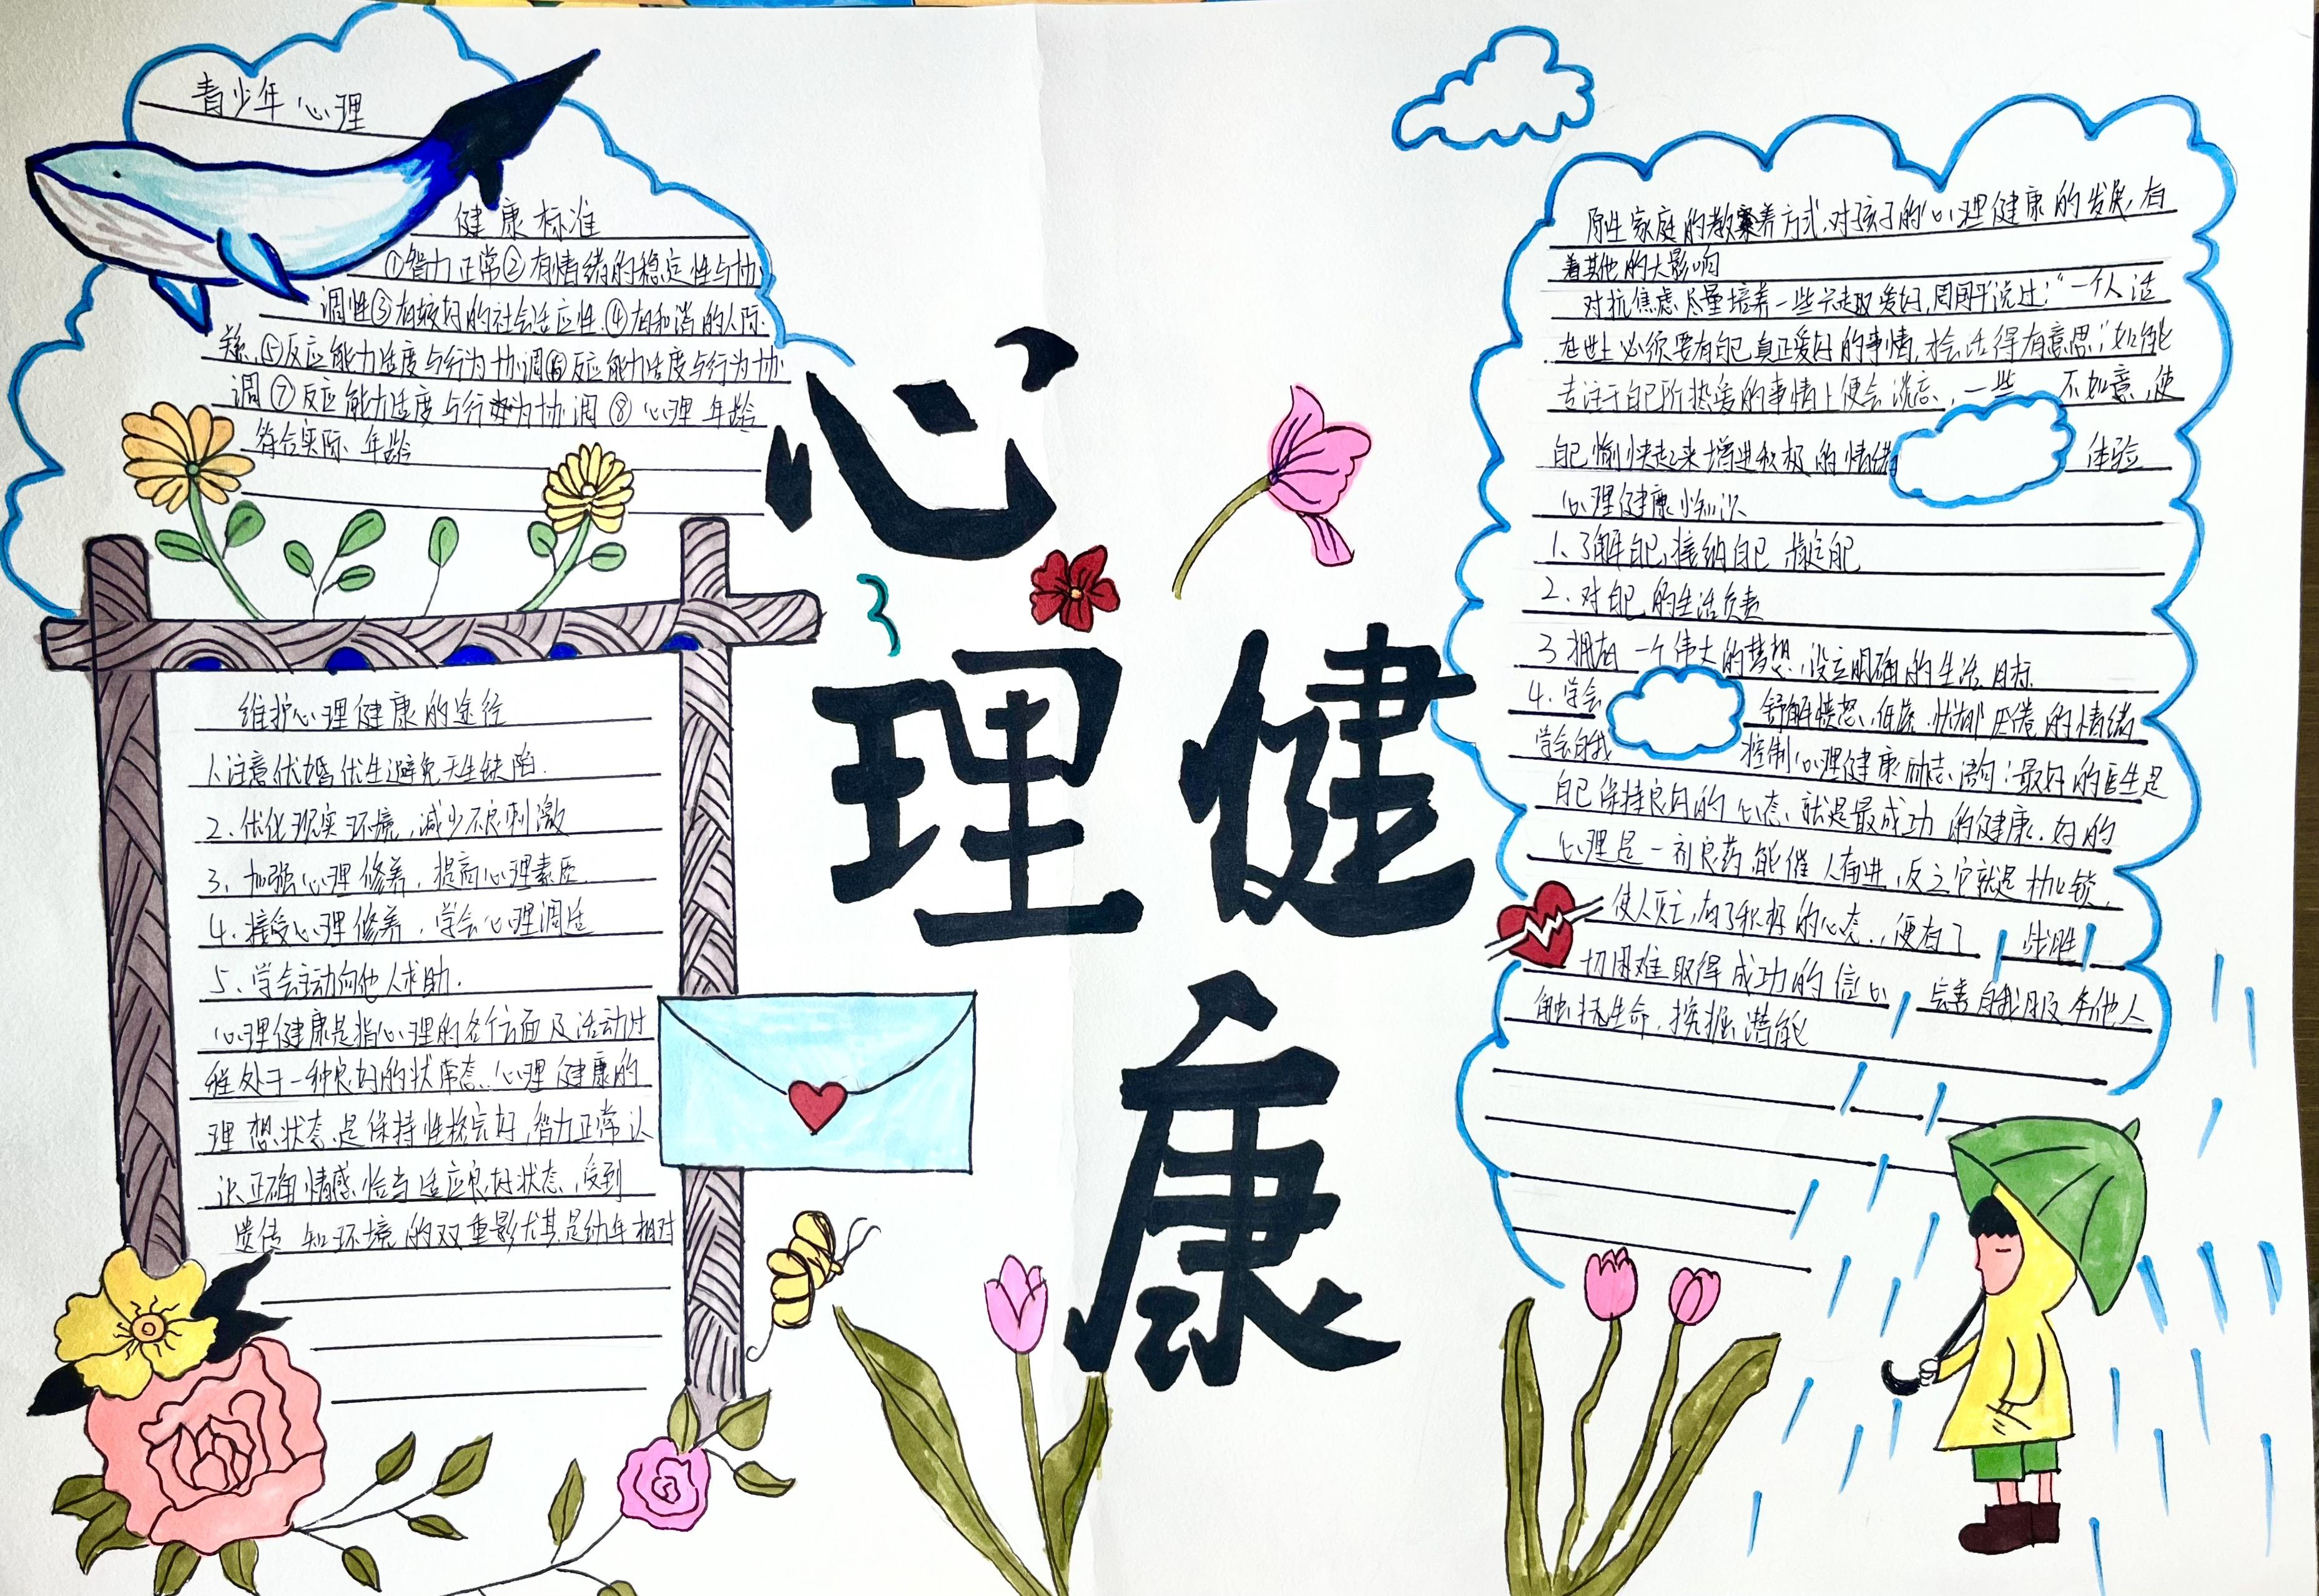 青少年心理
健康标准
①智力正常②有情绪的稳定性与协
调性③有较好的社会适应性.④有和谐的人际
关系.⑤反应能力适度与行为协调⑥反应能力适度与行为协
调⑦反应能力适度与行为协调⑧心理年龄
符合实际年龄
心
理
健
康
维护心理健康的途径
1.注意优婚优生避免天生缺陷.
2.优化现实环境,减少不良刺激
3、加强心理修养,提高心理素质.
4.接受心理修养,学会心理调适
5、学会主动向他人求助.
心理健康是指心理的各个方面及活动过
程处于一种良好的状态.心理健康的
理想状态是保持性格完好,智力正常认
识正确情感恰当适应良好状态,受到
遗传和环境的双重影尤其是幼年相对
原生家庭的教养方式,对孩子的心理健康的发展,有
着其他的大影响
对抗焦虑尽量培养一些兴趣爱好,周国平说过:“一个人活
在世上必须要有自己真正爱好的事情,才会活得有意思;如能
专注于自己所热爱的事情上便会淡忘,一些不如意,使
自己愉快起来增进积极的情绪体验
心理健康小知识
1、了解自己,接纳自己 肯定自己
2.对自己的生活负责
3.拥有一个伟大的梦想,设立明确的生活目标
4.学会舒解愤怒、低落、忧郁厌倦的情绪
学会自我控制心理健康励志语句:最好的医生是
自己保持良好的心态,就是最成功的健康.好的
心理是一剂良药,能催人奋进,反之它就是枷锁,
使人灭亡,有了积极的心态.,便有了战胜
一切困难取得成功的信心 完善自我
生命,挖掘潜能